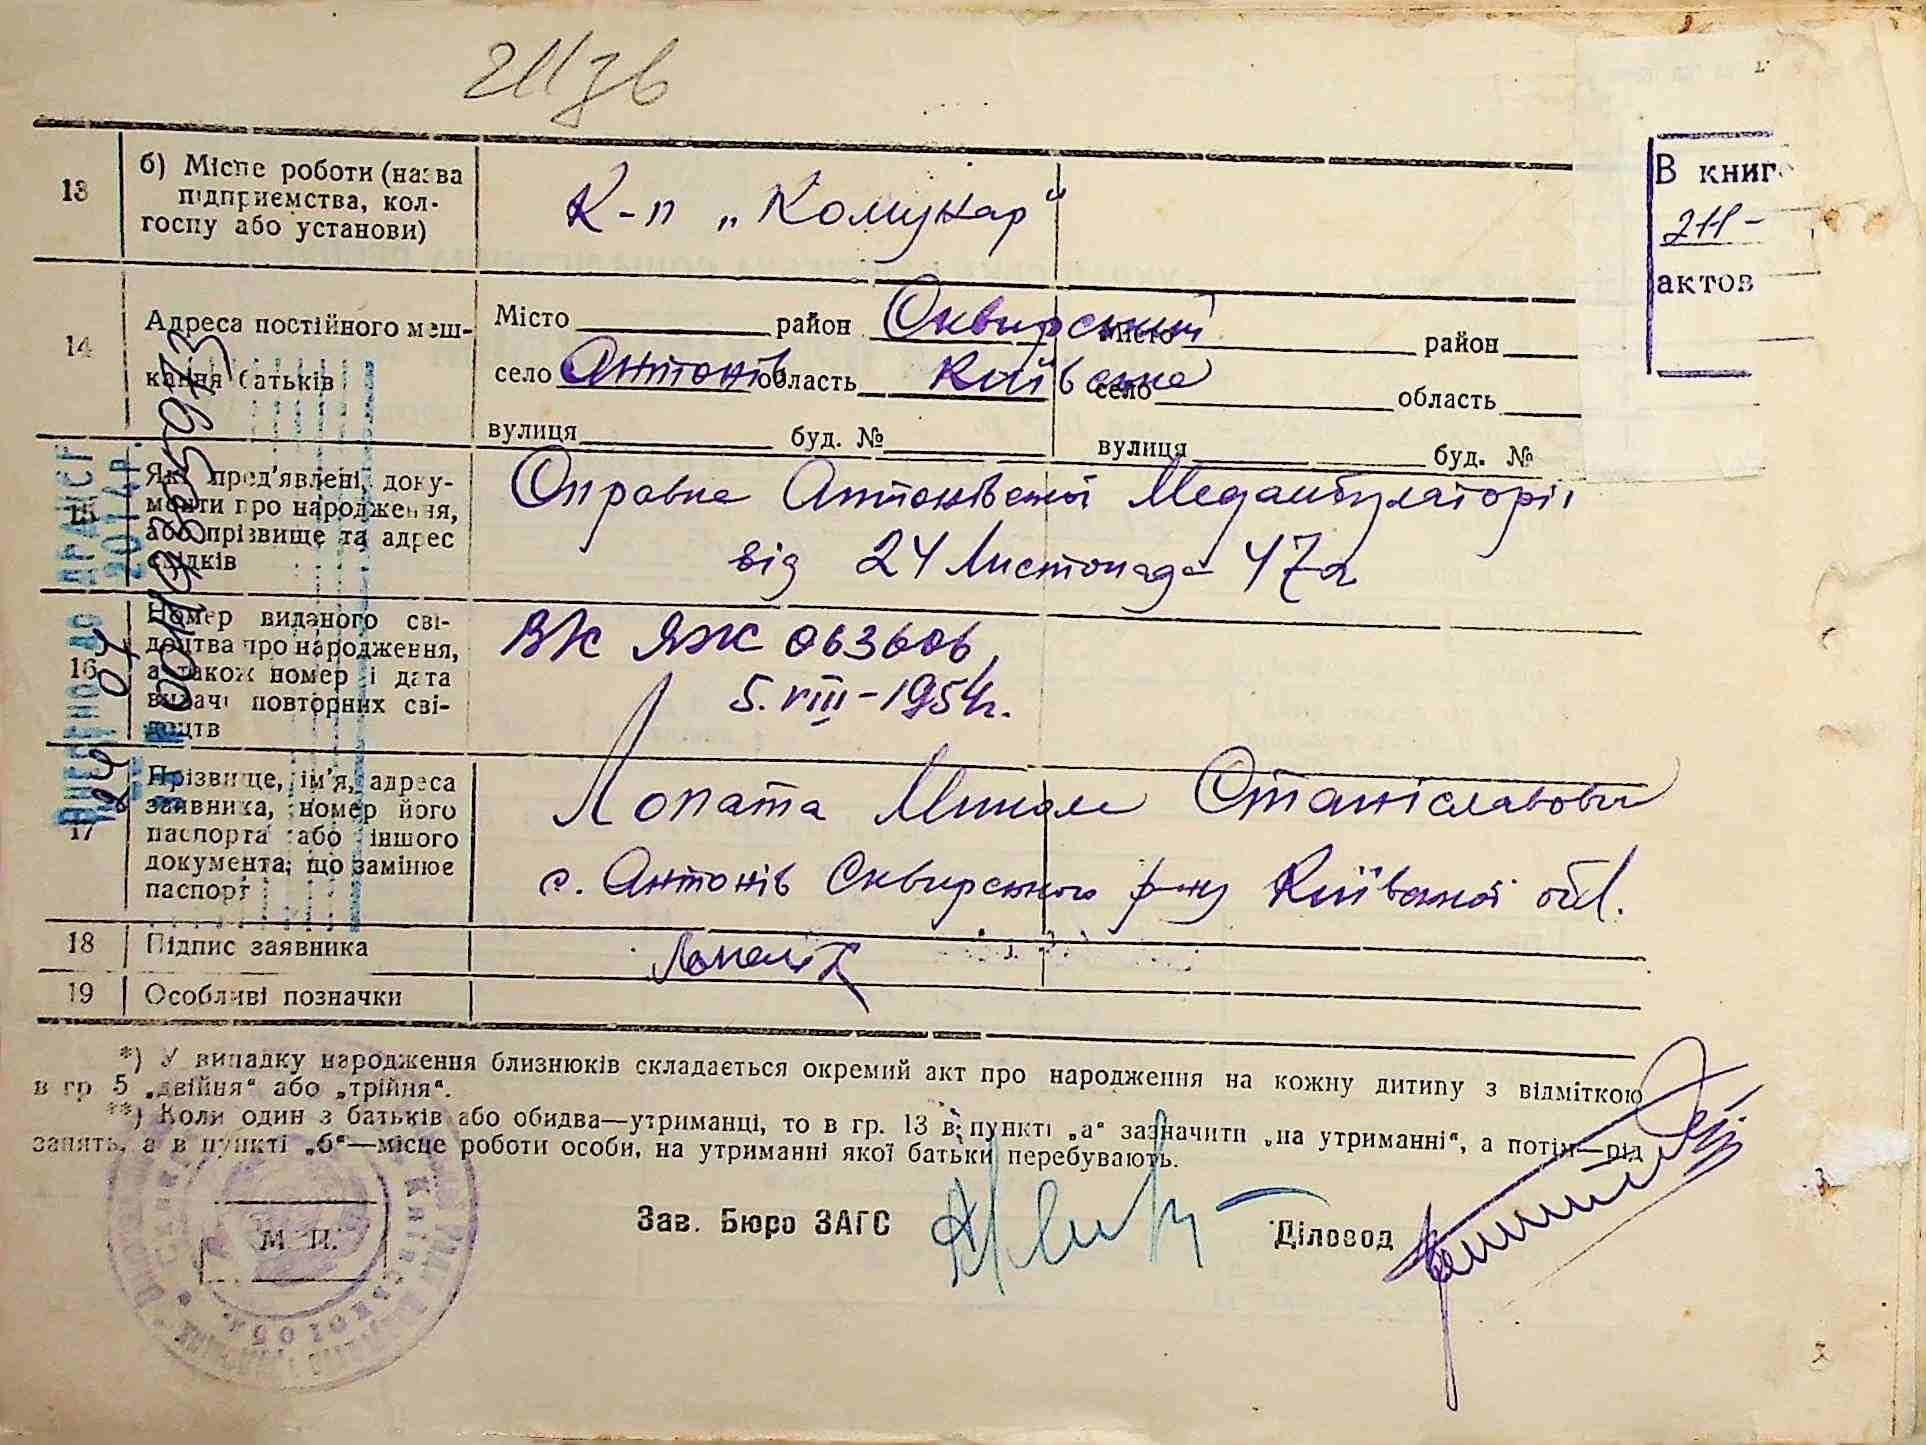 13
б) Місце роботи (назва
підприємства, кол-
госпу або установи)
К-п „Комунар“
В книг
211-
актов
14
Адреса постійного меш-
кання батьків
Місто район Сквирський Місто район
село Антонів область Київська село область
вулиця буд. № вулиця буд. №
15
Які пред'явлені доку-
менти про народження,
або прізвище та адрес
свідків
Справка Антонівської Медамбулаторії
від 24 Листопада 47 р
16
Номер виданого сві-
доцтва про народження,
а також номер і дата
видачі повторних сві-
доцтв
ЯЖ 063606,
5.VIII-1954р.
17
Прізвище, ім'я, адреса
заявника, номер його
паспорта або іншого
документа, що замінює
паспорт
Лопата Микола Станіславович
с. Антонів Сквирського р-ну Київської обл.
18
Підпис заявника
19
Особливі позначки
ВНЕСЕНО ДО ДРАЦСГ
*) У випадку народження близнюків складається окремий акт про народження на кожну дитину з відміткою
в гр 5 „двійня“ або „трійня“.
**) Коли один з батьків або обидва—утриманці, то в гр. 13 в пункті „а“ зазначити „на утриманні“, а потім—рід
занять, а в пункті „б“—місце роботи особи, на утриманні якої батьки перебувають.
М П.
Зав. Бюро ЗАГС
Діловод